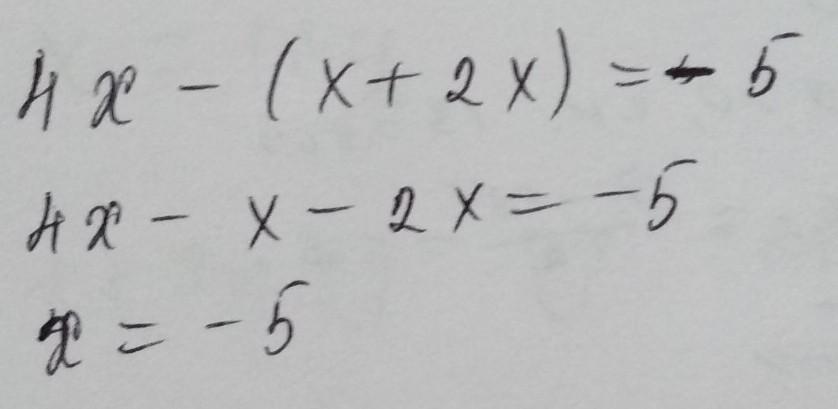 4x - (x + 2x) = - 5
4x - x - 2x = - 5
x = - 5